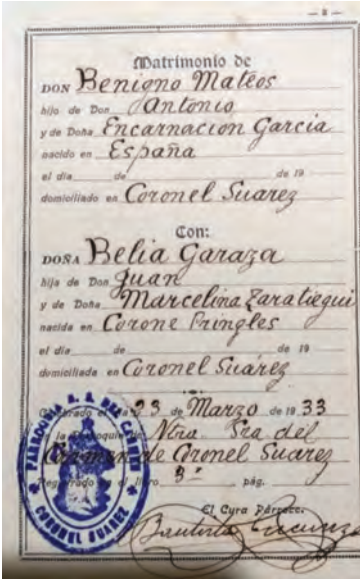 — 3 —
Matrimonio de
DON Benigno Mateos
hijo de Don Antonio
y de Doña Encarnacion Garcia
nacido en España
el día de de 19
domiciliado en Coronel Suarez
Con:
DOÑA Belia Garaza
hija de Don Juan
y de Doña Marcelina Zaratiegui
nacida en Corone Pringles
el día de de 19
domiciliada en Coronel Suárez
Celebrado el día 23 de Marzo de 1933
en la Parroquia de Ntra. Sra. del
Carmen de Coronel Suarez
Registrado en el libro 3º pág.
El Cura Párroco.
Bautista
PARROQUIA N. S. DEL CARMEN
CORONEL SUAREZ